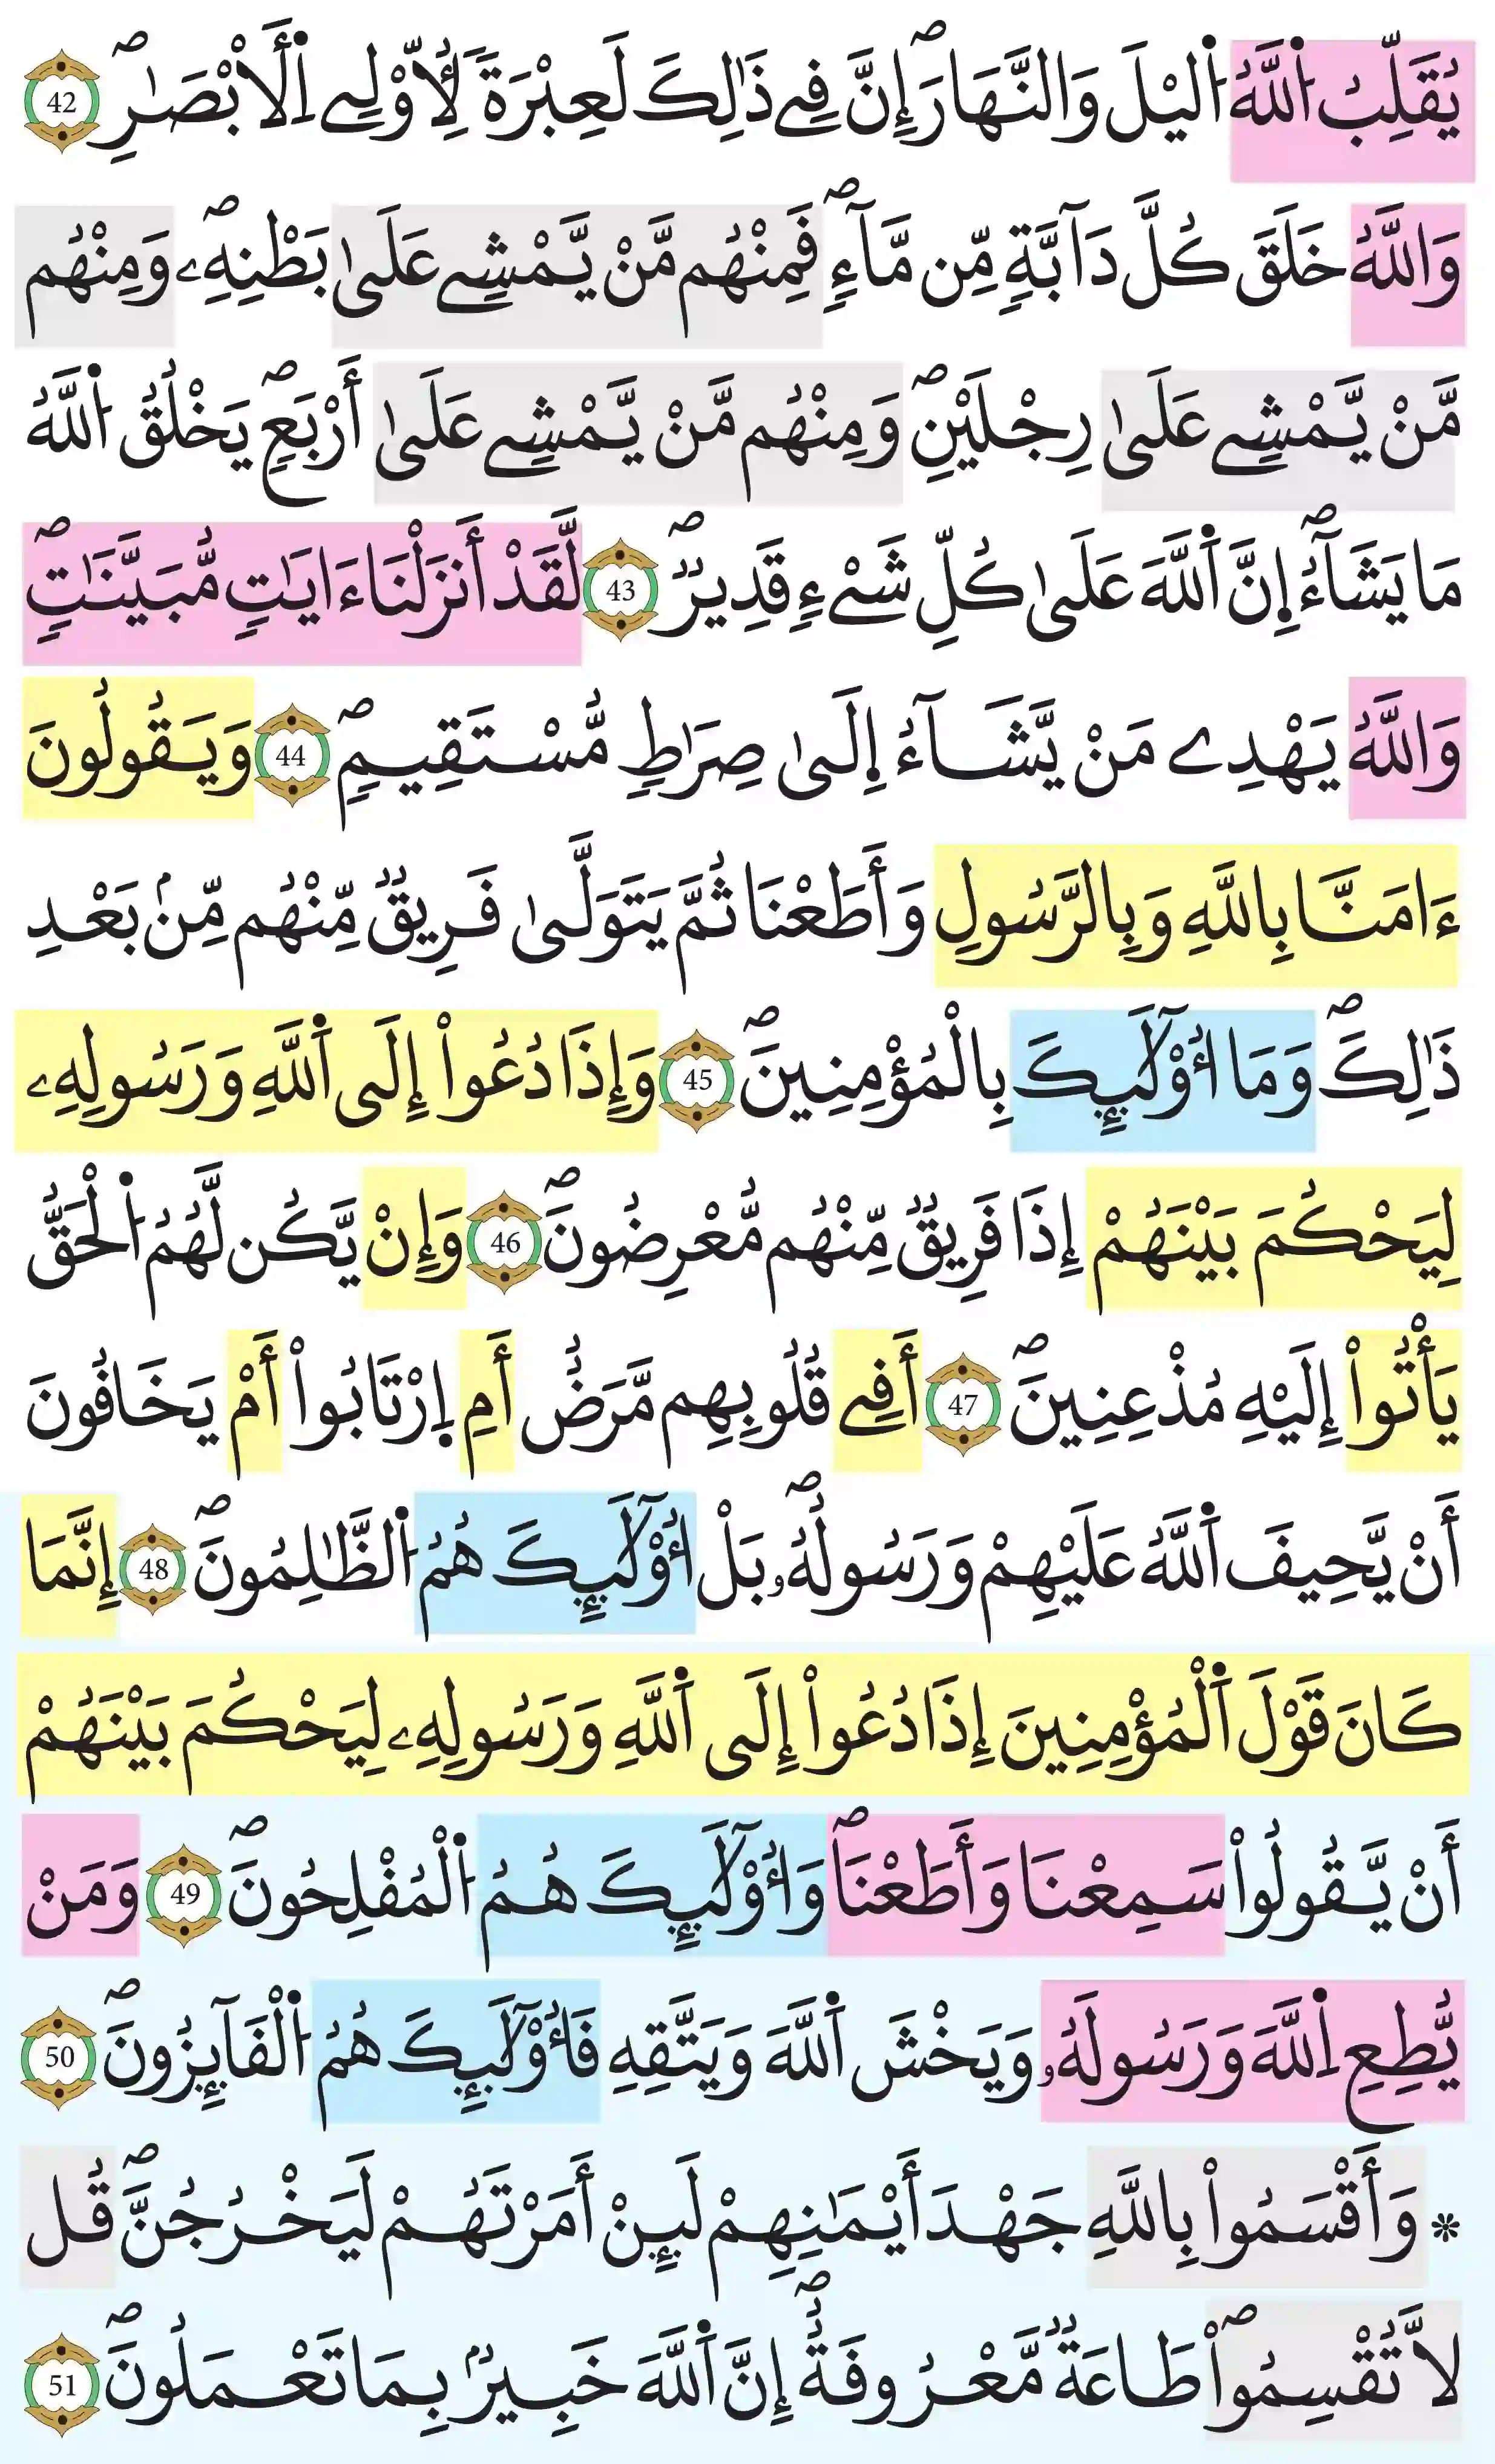 يُقَلِّبُ اُ۬للَّهُ اُ۬ليْلَ وَالنَّهَارَۖ إِنَّ فِے ذَٰلِكَ لَعِبْرَةٗ لِّأُوْلِے اِ۬لَابْصٰ۪رِۖ 42
وَاللَّهُ خَلَقَ كُلَّ دَآبَّةٖ مِّن مَّآءٖۖ فَمِنْهُم مَّنْ يَّمْشِے عَلَىٰ بَطْنِهِۦۖ وَمِنْهُم
مَّنْ يَّمْشِے عَلَىٰ رِجْلَيْنِۖ وَمِنْهُم مَّنْ يَّمْشِے عَلَىٰٓ أَرْبَعٖۖ يَخْلُقُ اُ۬للَّهُ
مَا يَشَآءُۖ اِ۪نَّ اَ۬للَّهَ عَلَىٰ كُلِّ شَےْءٖ قَدِيرٞۖ 43 لَّقَدْ أَنزَلْنَا ءَايَٰتٖ مُّبَيَّنَٰتٖۖ
وَاللَّهُ يَهْدِے مَنْ يَّشَآءُ اِ۪لَىٰ صِرَٰطٖ مُّسْتَقِيمٖۖ 44 وَيَقُولُونَ
ءَامَنَّا بِاللَّهِ وَبِالرَّسُولِ وَأَطَعْنَا ثُمَّ يَتَوَلَّىٰ فَرِيقٞ مِّنْهُم مِّنۢ بَعْدِ
ذَٰلِكَۖ وَمَا أُوْلَٰٓئِكَ بِالْمُؤْمِنِينَۖ 45 وَإِذَا دُعُواْ إِلَى اَ۬للَّهِ وَرَسُولِهِۦ
لِيَحْكُمَ بَيْنَهُمْ إِذَا فَرِيقٞ مِّنْهُم مُّعْرِضُونَۖ 46 وَإِنْ يَّكُن لَّهُمُ اُ۬لْحَقُّ
يَأْتُواْ إِلَيْهِ مُذْعِنِينَۖ 47 أَفِے قُلُوبِهِم مَّرَضٌ أَمِ اِ۪رْتَابُواْ أَمْ يَخَافُونَ
أَنْ يَّحِيفَ اَ۬للَّهُ عَلَيْهِمْ وَرَسُولُهُۥۖ بَلُ اُ۟وْلَٰٓئِكَ هُمُ اُ۬لظَّٰلِمُونَۖ 48 إِنَّمَا
كَانَ قَوْلَ اَ۬لْمُؤْمِنِينَ إِذَا دُعُواْ إِلَى اَ۬للَّهِ وَرَسُولِهِۦ لِيَحْكُمَ بَيْنَهُمْ
أَنْ يَّقُولُواْ سَمِعْنَا وَأَطَعْنَاۖ وَأُوْلَٰٓئِكَ هُمُ اُ۬لْمُفْلِحُونَۖ 49 وَمَنْ
يُّطِعِ اِ۬للَّهَ وَرَسُولَهُۥ وَيَخْشَ اَ۬للَّهَ وَيَتَّقِهِۦ فَأُوْلَٰٓئِكَ هُمُ اُ۬لْفَآئِزُونَۖ 50
* وَأَقْسَمُواْ بِاللَّهِ جَهْدَ أَيْمَٰنِهِمْ لَئِنْ أَمَرْتَهُمْ لَيَخْرُجُنَّۖ قُل
لَّا تُقْسِمُواْۖ طَاعَةٞ مَّعْرُوفَةٌۖ إِنَّ اَ۬للَّهَ خَبِيرُۢ بِمَا تَعْمَلُونَۖ 51